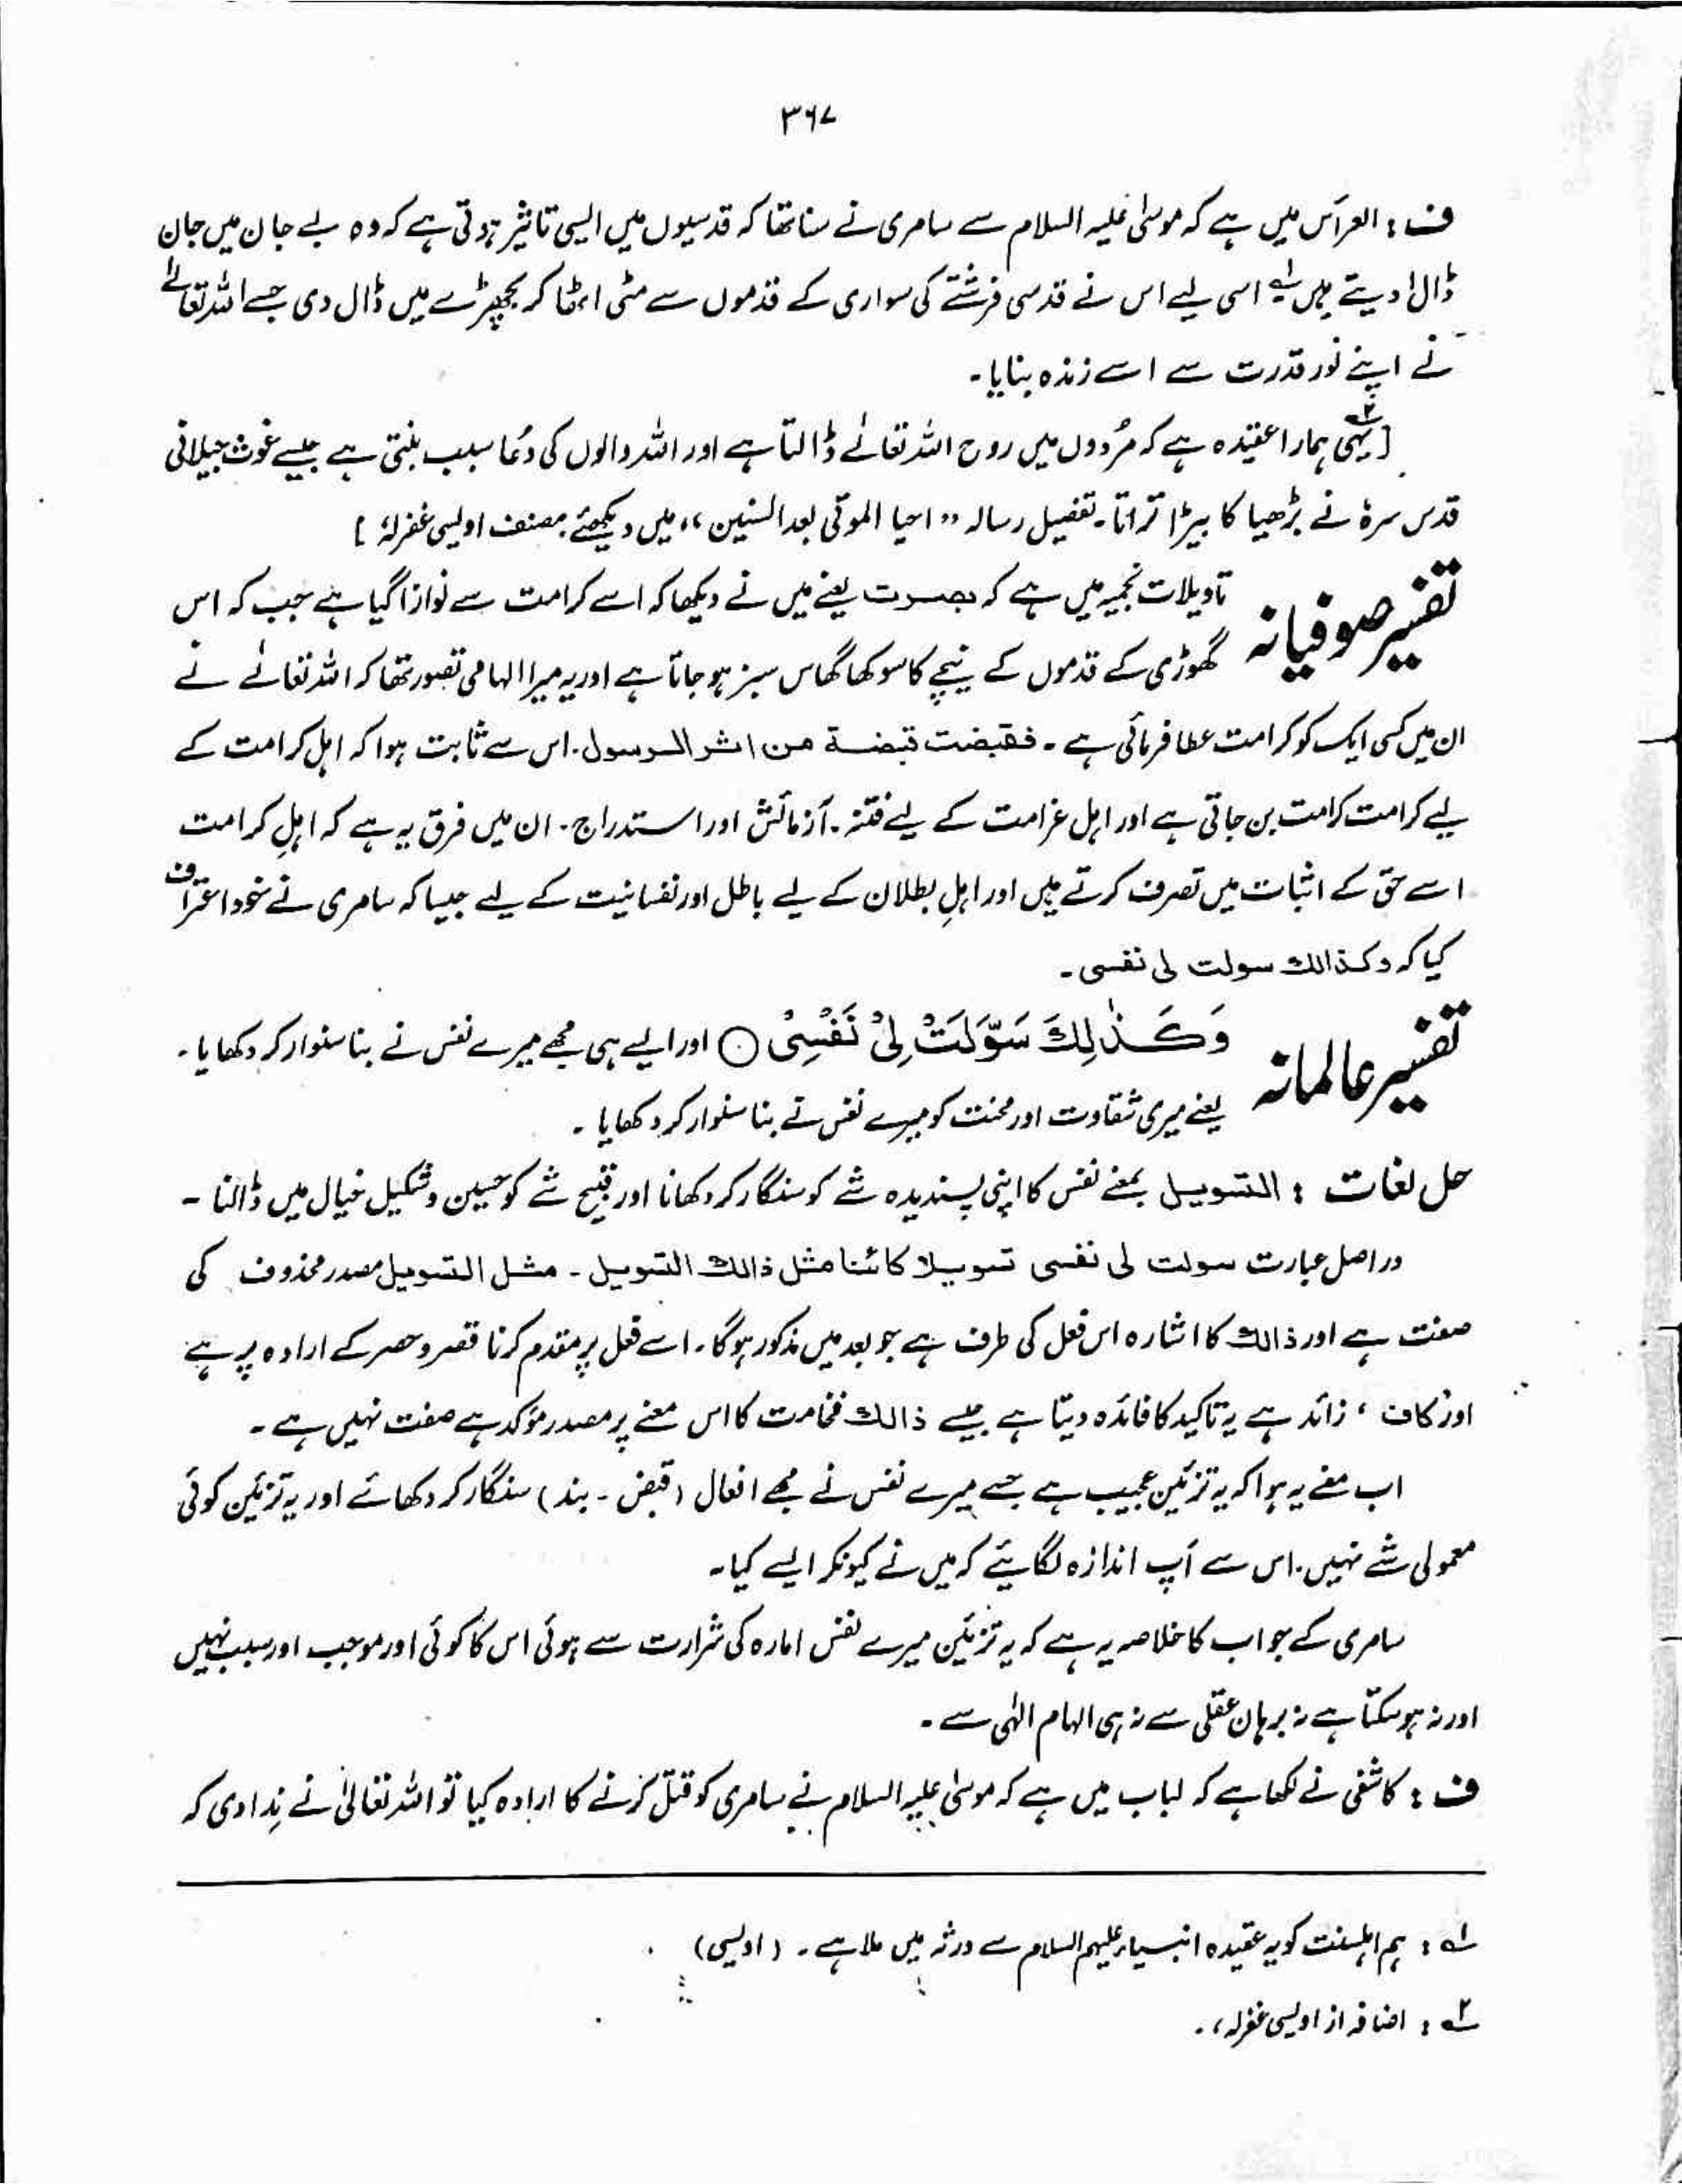 ۳۶۷
ف : العرائس میں ہے کہ موسیٰ علیہ السلام سے سامری نے سنا تھا کہ قدسیوں میں ایسی تاثیر ہوتی ہے کہ وہ بے جان میں جان
ڈال دیتے ہیں لہ اسی لیے اس نے قدسی فرشتے کی سواری کے قدموں سے مٹی اٹھا کر بچھڑے میں ڈال دی جسے اللہ تعالےٰ
نے اپنے نور قدرت سے اسے زندہ بنایا ۔
[ یہی ۲ہ ہمارا عقیدہ ہے کہ مُردوں میں روح اللہ تعالےٰ ڈالتا ہے اور اللہ والوں کی دُعا سبب بنتی ہے جیسے غوث جیلانی
قدس سرہٗ نے بڑھیا کا بیڑا ترایا ۔ تفصیل رسالہ " احیا الموتی بعد السنین " میں دیکھئے مصنف اویسی غفرلہٗ ]
تفسیر صوفیانہ تاویلات نجمیہ میں ہے کہ بصرت یعنے میں نے دیکھا کہ اسے کرامت سے نوازا گیا ہے جب کہ اس
گھوڑی کے قدموں کے نیچے کا سوکھا گھاس سبز ہو جاتا ہے اور یہ میرا الہامی تصور تھا کہ اللہ تعالےٰ نے
ان میں کسی ایک کو کرامت عطا فرمائی ہے ۔ فقبضت قبضة من اثر الرسول ۔ اس سے ثابت ہوا کہ اہل کرامت کے
لیے کرامت کرامت بن جاتی ہے اور اہل غرامت کے لیے فتنہ ۔ آزمائش اور استدراج ۔ ان میں فرق یہ ہے کہ اہلِ کرامت
اسے حق کے اثبات میں تصرف کرتے ہیں اور اہلِ بطلان کے لیے باطل اور نفسانیت کے لیے جیسا کہ سامری نے خود اعتراف
کیا کہ وکذالك سولت لی نفسی ۔
تفسیر عالمانہ وَكَذٰلِكَ سَوَّلَتْ لِيْ نَفْسِيْ ○ اور ایسے ہی مجھے میرے نفس نے بنا سنوار کر دکھایا ۔
یعنے میری شقاوت اور محنت کو میرے نفس نے بنا سنوار کر دکھایا ۔
حل لغات : التسویل بمعنے نفس کا اپنی پسندیدہ شے کو سنگار کر دکھانا اور قبیح شے کو حسین و شکیل خیال میں ڈالنا ۔
دراصل عبارت سولت لی نفسی تسویلا کائنا مثل ذالك التسویل ۔ مثل التسویل مصدر محذوف کی
صفت ہے اور ذالك کا اشارہ اس فعل کی طرف ہے جو بعد میں مذکور ہوگا ۔ اسے فعل پر مقدم کرنا قصر و حصر کے ارادہ پر ہے
اور کاف ، زائد ہے یہ تاکید کا فائدہ دیتا ہے جیسے ذالك فخامت کا اس معنے پر مصدر مؤکد ہے صفت نہیں ہے ۔
اب معنے یہ ہوا کہ یہ تزئین عجیب ہے جسے میرے نفس نے مجھے افعال ( قبض ۔ بنذ ) سنگار کر دکھائے اور یہ تزئین کوئی
معمولی شے نہیں ۔ اس سے آپ اندازہ لگایئے کہ میں نے کیونکر ایسے کیا ۔
سامری کے جواب کا خلاصہ یہ ہے کہ یہ تزئین میرے نفس امارہ کی شرارت سے ہوئی اس کا کوئی اور موجب اور سبب نہیں
اور نہ ہو سکتا ہے نہ برہان عقلی سے نہ ہی الہام الٰہی سے ۔
ف : کاشفی نے لکھا ہے کہ لباب میں ہے کہ موسیٰ علیہ السلام نے سامری کو قتل کرنے کا ارادہ کیا تو اللہ تعالیٰ نے ندا دی کہ
لہ : ہم اہلسنت کو یہ عقیدہ انبیاء علیہم السلام سے ورثہ میں ملا ہے ۔ ( اویسی )
۲ہ : اضافہ از اویسی غفرلہ ، ۔